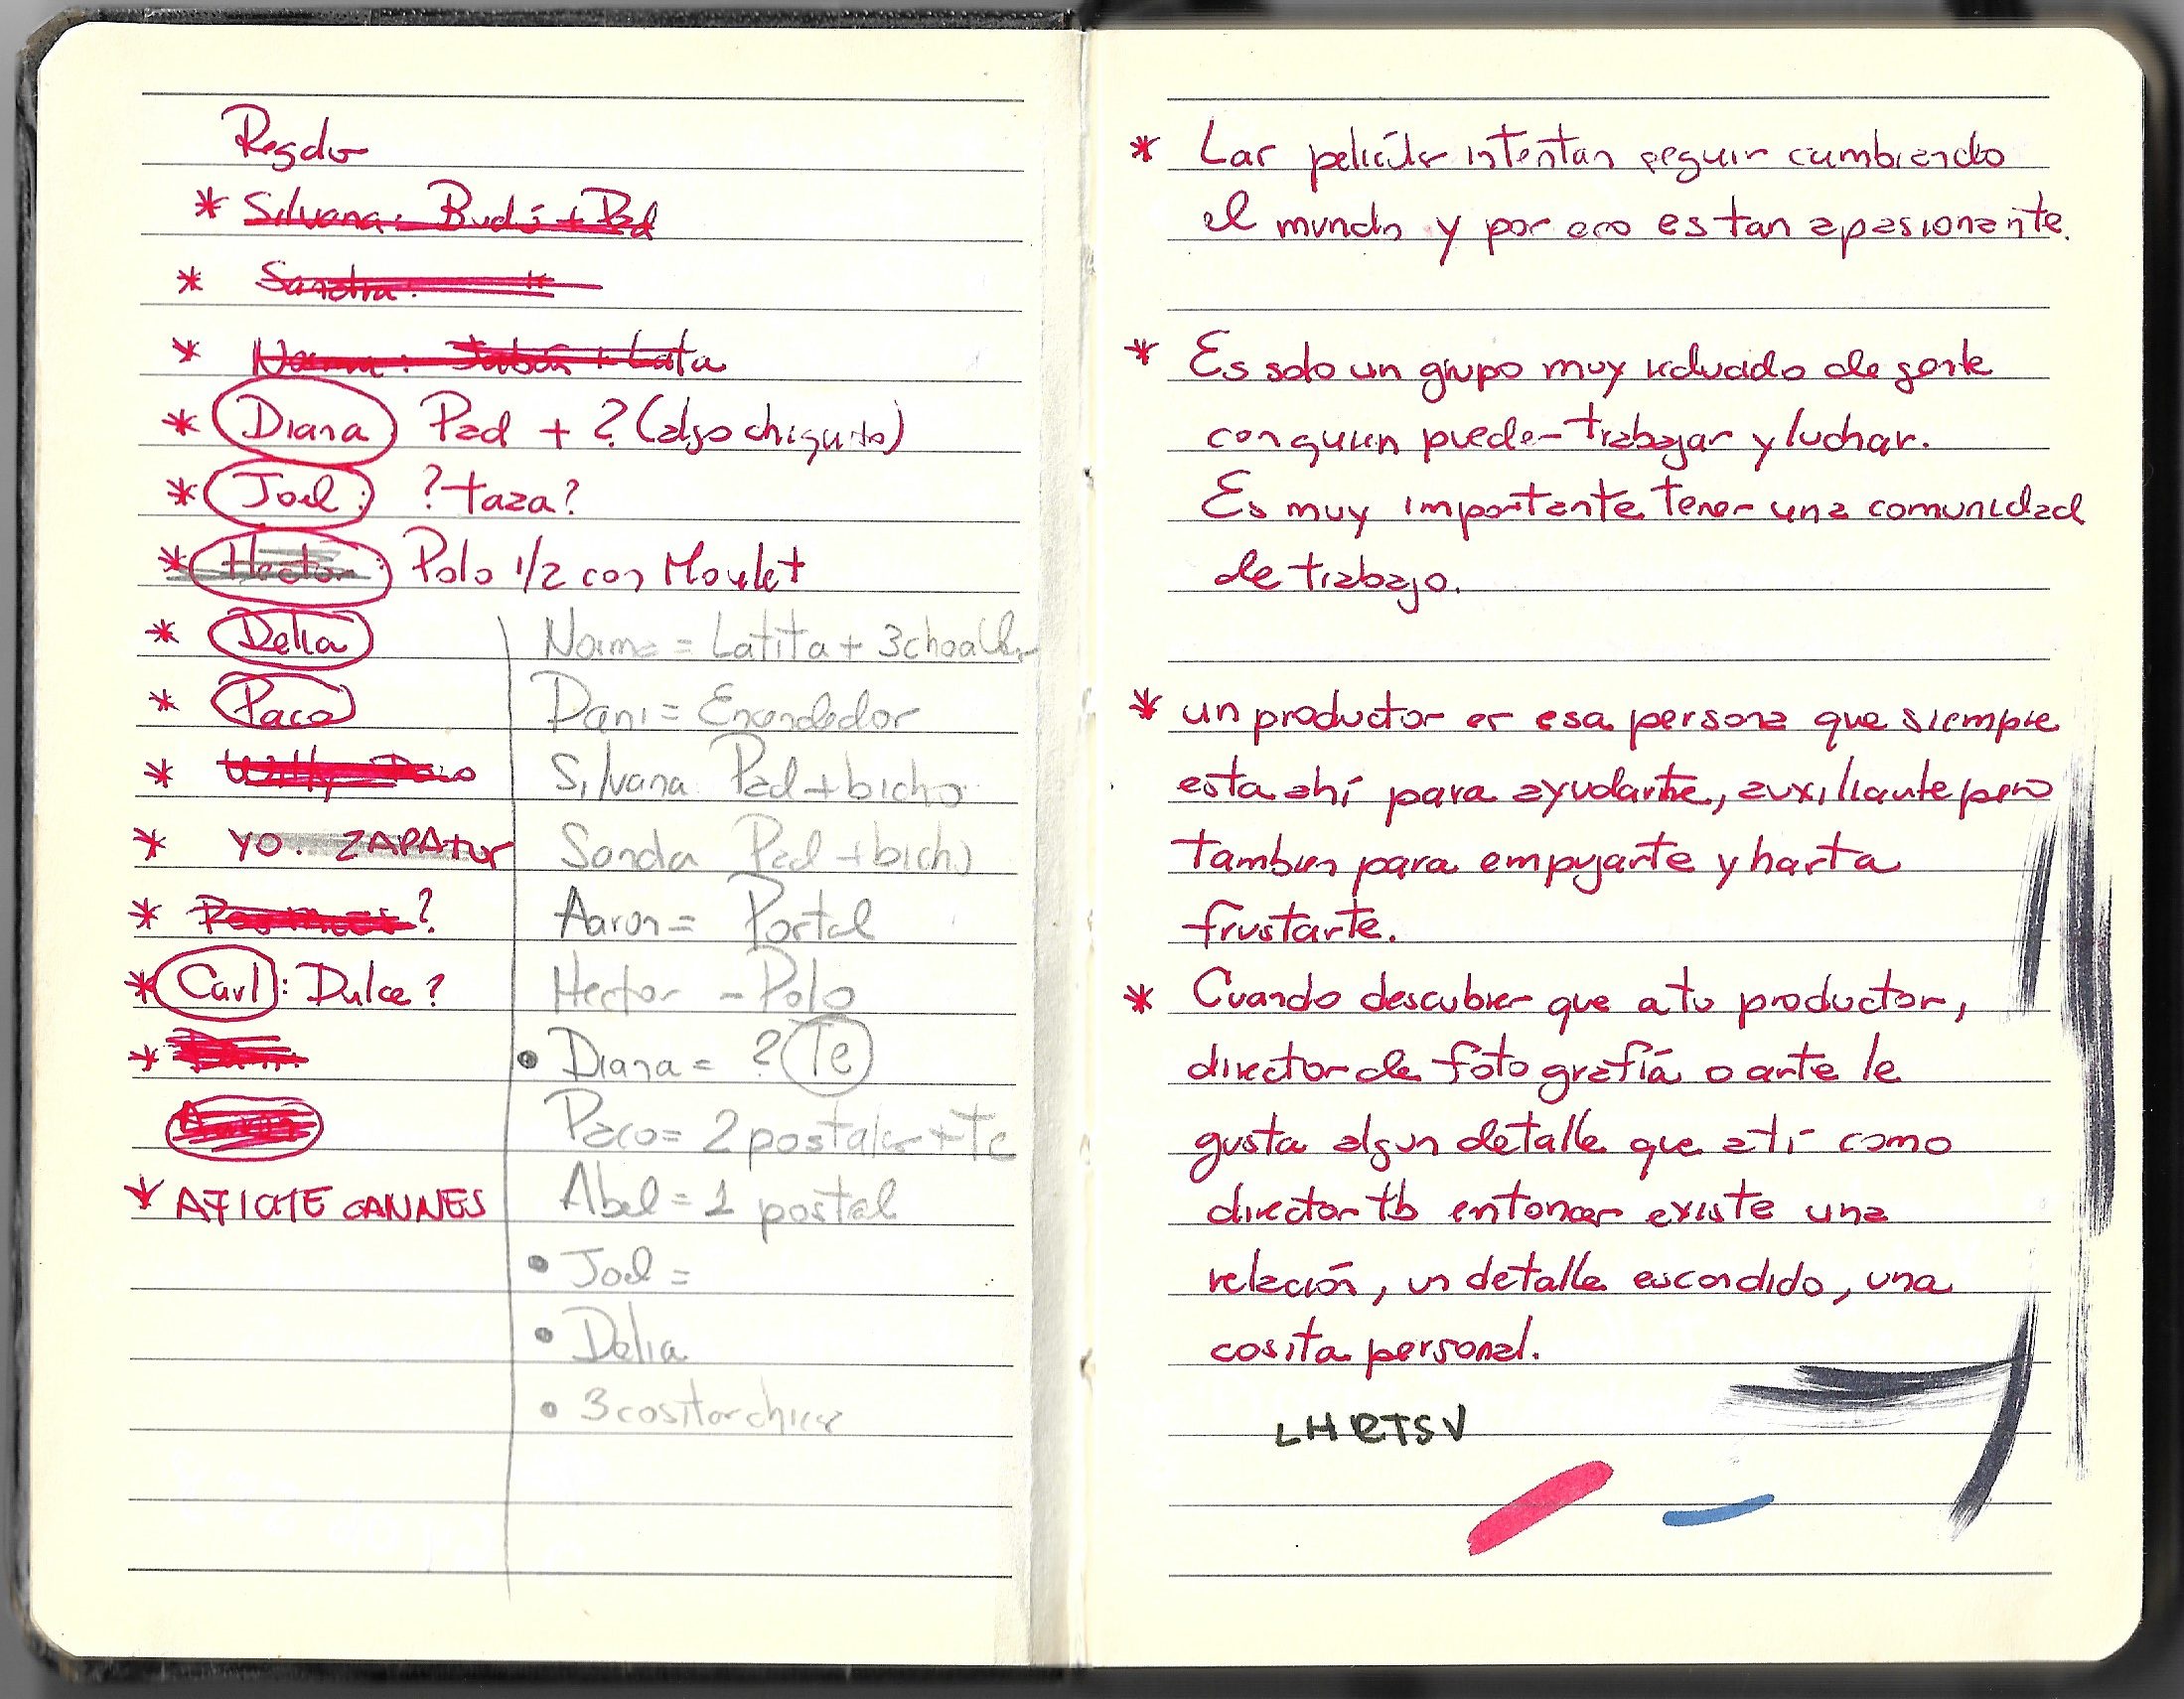 Regalos
* Silvana: Budú + Pad
* Sandra:
* Norma: Jabón + Lata
* Diana Pad + ? (algo chiquito)
* Joel: ? taza?
* Hector: Polo 1/2 con Moulet
* Delia
* Paco
*
* YO. ZAPATUR
* ?
* Carl: Dulce?
*
* AFICHE CANNES
Norma = Latita + 3
Dani = Encendedor
Silvana Pad + bicho
Sandra Pad + bicho
Aaron = Portal
Hector - Polo
• Diana = ? Te
Paco = 2 postales + Te
Abel = 1 postal
• Joel =
• Delia
• 3 cositas chicas
* Las películas intentan seguir cambiando
el mundo y por eso es tan apasionante.
* Es solo un grupo muy reducido de gente
con quien puedes trabajar y luchar.
Es muy importante tener una comunidad
de trabajo.
* un productor es esa persona que siempre
esta ahí para ayudarte, auxiliarte pero
tambien para empujarte y hasta
frustarte.
* Cuando descubres que a tu productor,
director de fotografía o arte le
gusta algun detalle que a ti como
director tb entonces existe una
relación, un detalle escondido, una
cosita personal.
LHRTSV